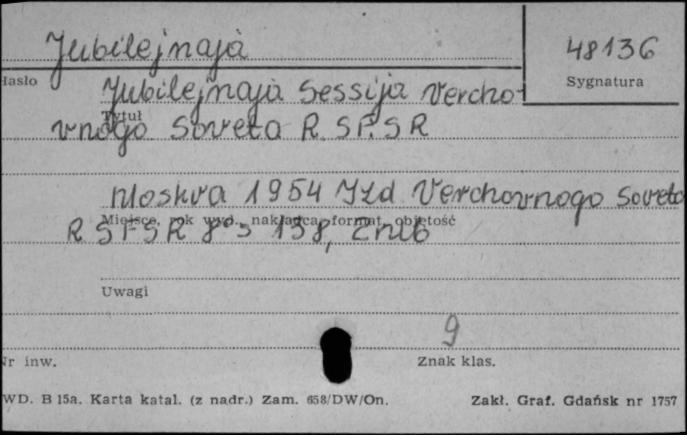 Jubilejnaja 48136
Hasło Sygnatura
Jubilejnaja Sessija Vercho-
Tytuł
vnogo Soveta R.SF.SR
Moskva 1954 Izd Verchovnogo Soveta
Miejsce, rok wyd., nakładca, format, objętość
RSFSR 8° s 138,
Uwagi
9
Nr inw. Znak klas.
WD. B 15a. Karta katal. (z nadr.) Zam. 658/DW/On. Zakł. Graf. Gdańsk nr 1757